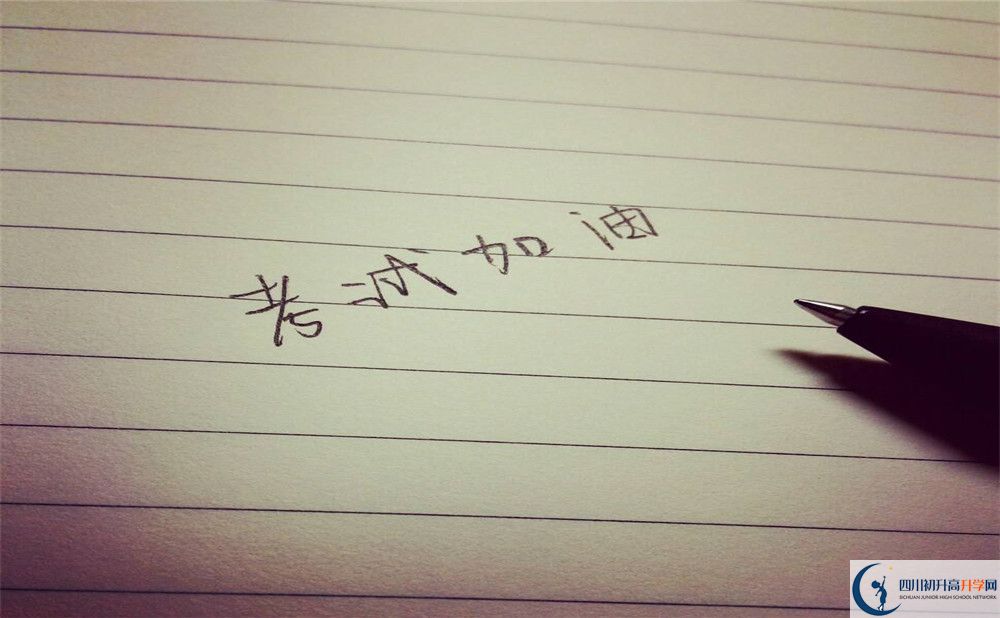 考试加油
四川初升高升学网
SICHUAN JUNIOR HIGH SCHOOL NETWORK